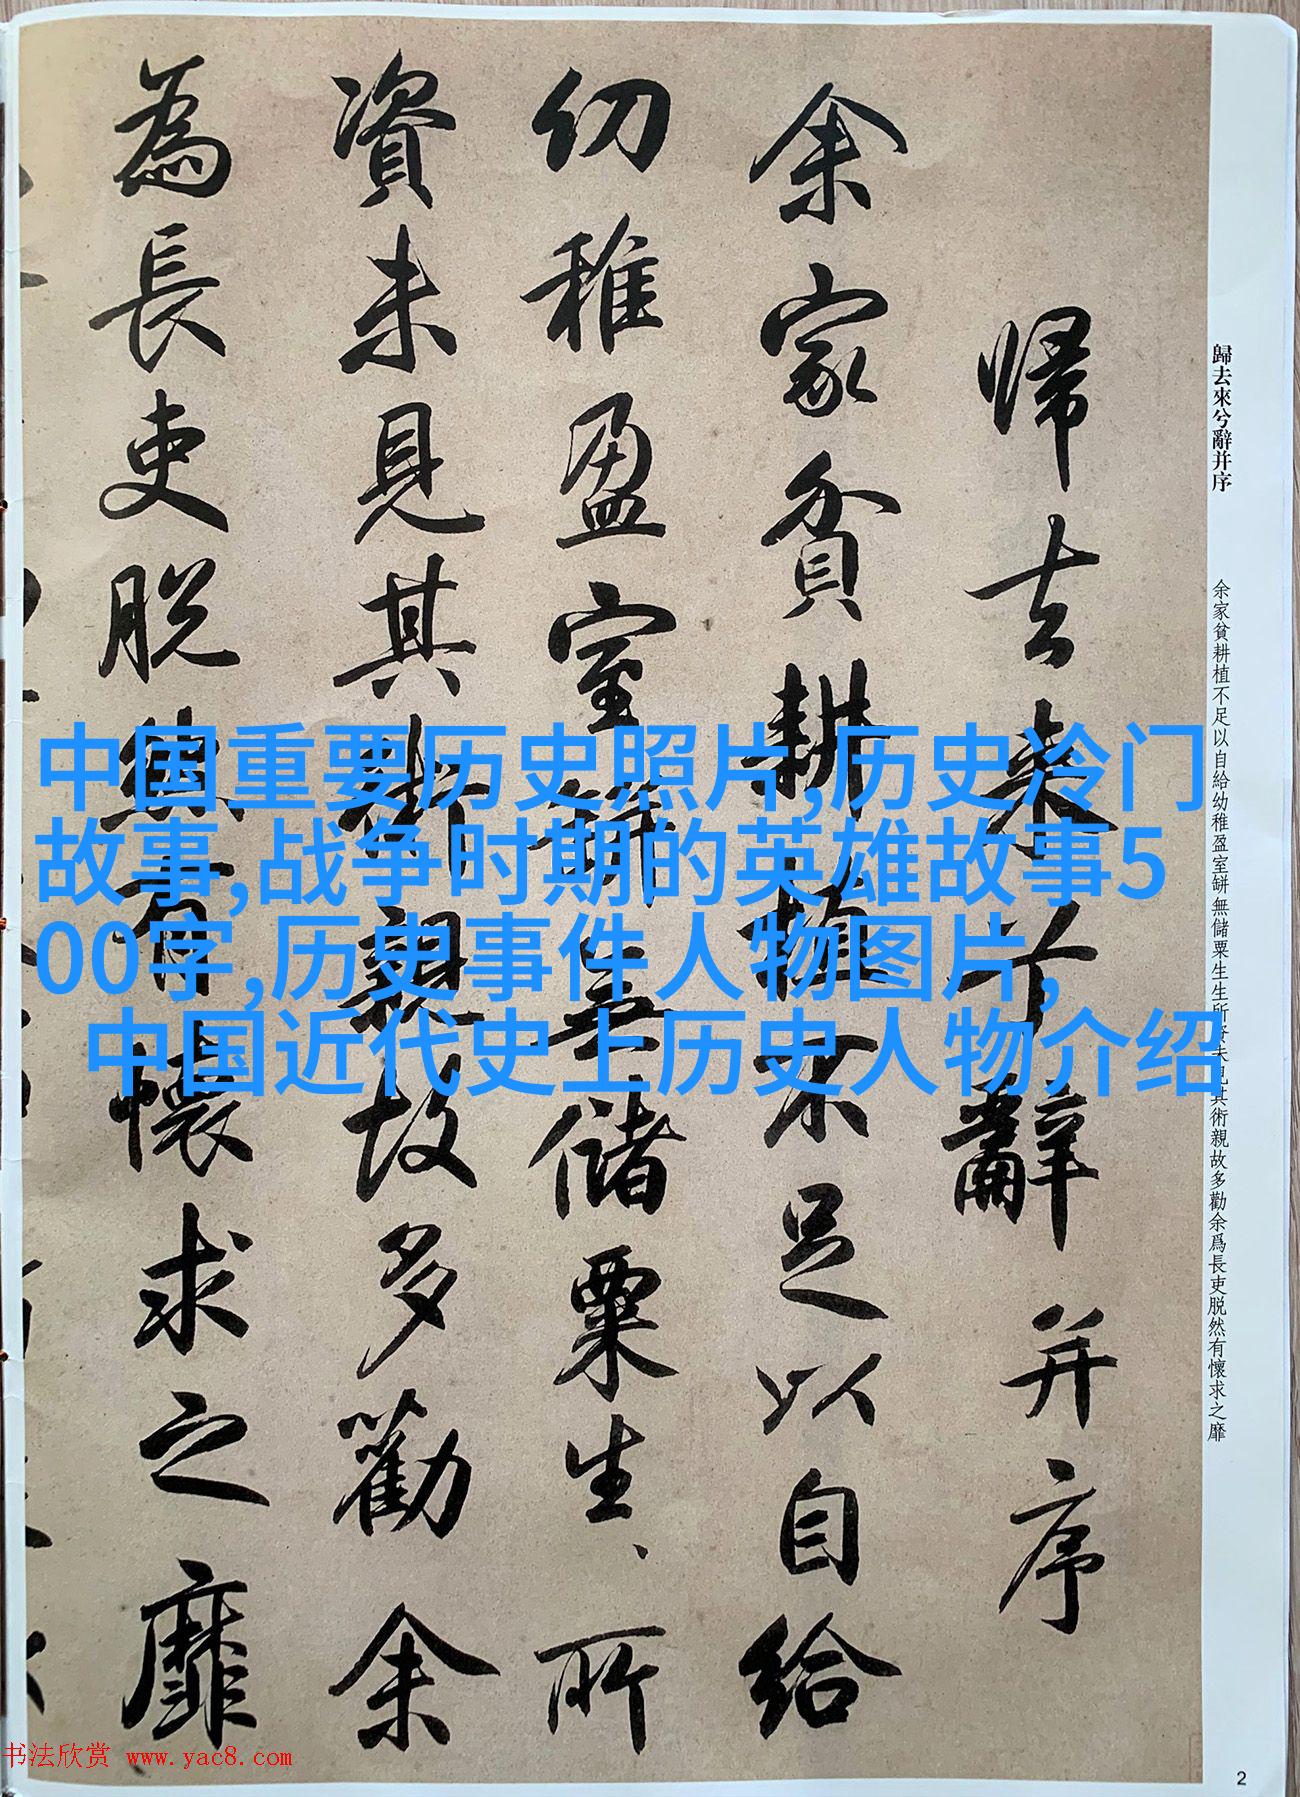 歸去來兮辭并序
余家貧耕植不足以自給幼稚盈室缾無儲粟生生所資未見其術親故多勸余爲長吏脱然有懷求之靡
帰去来兮辭并序
余家貧耕植不足以自給
幼稚盈室缾無儲粟生、所
資未見其術親故多勸余
為長吏脱然有懷求之靡
中国重要历史照片,历史冷门
故事,战争时期的英雄故事5
00字,历史事件人物图片,
中国近代史上历史人物介绍
书法欣赏 www.yac8.com
2